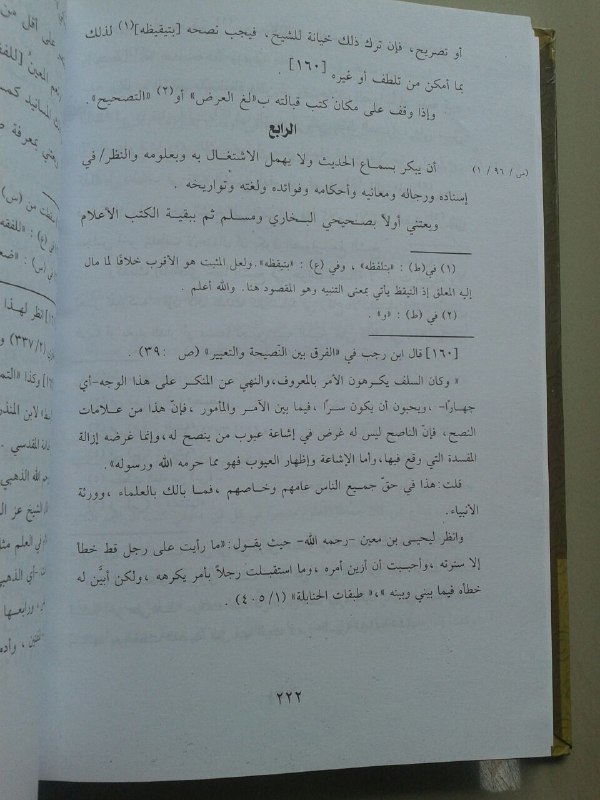 أو تصريح، فإن ترك ذلك خيانة للشيخ، فيجب نصحه [بتيقيظه](١) لذلك
بما أمكن من تلطف أو غيره [١٦٠].
وإذا وقف على مكان كتب قبالته ب«لغ العرض» أو(٢) «التصحيح».
الرابع
(ص / ٩٦ / ١)
أن يبكر بسماع الحديث ولا يهمل الاشتغال به وبعلومه والنظر/ في
إسناده ورجاله ومعانيه وأحكامه وفوائده ولغته وتواريخه .
ويعتني أولاً بصحيحي البخاري ومسلم ثم ببقية الكتب الأعلام
(١) في(ط) : «بتلفظه» ، وفي (ع) : «بتيقظه» ولعل المثبت هو الأقرب خلافًا لما مال
إليه المعلق إذ التيقظ يأتي بمعنى التنبه وهو المقصود هنا. والله أعلم .
(٢) في (ط) : «و» .
[١٦٠] قال ابن رجب في «الفرق بين النصيحة والتعيير» (ص :٣٩) .
« وكان السلف يكرهون الأمر بالمعروف،والنهي عن المنكر على هذا الوجه-أي
جهارًا- ،ويحبون أن يكون سرًا ،فيما بين الآمر والمأمور ،فإنّ هذا من علامات
النصح، فإنّ الناصح ليس له غرض في إشاعة عيوب من ينصح له،وإنما غرضه إزالة
المفسدة التي رقع فيها،وأما الإشاعة وإظهار العيوب فهو مما حرمه الله ورسوله».
قلت:هذا في حقّ جميع الناس عامهم وخاصهم ،فما بالك بالعلماء ،وورثة
الأنبياء.
وانظر ليحيى بن معين -رحمه الله- حيث يقول:«ما رأيت على رجل قط خطأ
إلا سترته ،وأحببت أن أزين أمره ،وما استقبلت رجلاً بأمر يكرهه ،ولكن أبيّن له
خطأه فيما بيني وبينه »،« طبقات الحنابلة» (١/ ٤٠٥) .
٢٢٢